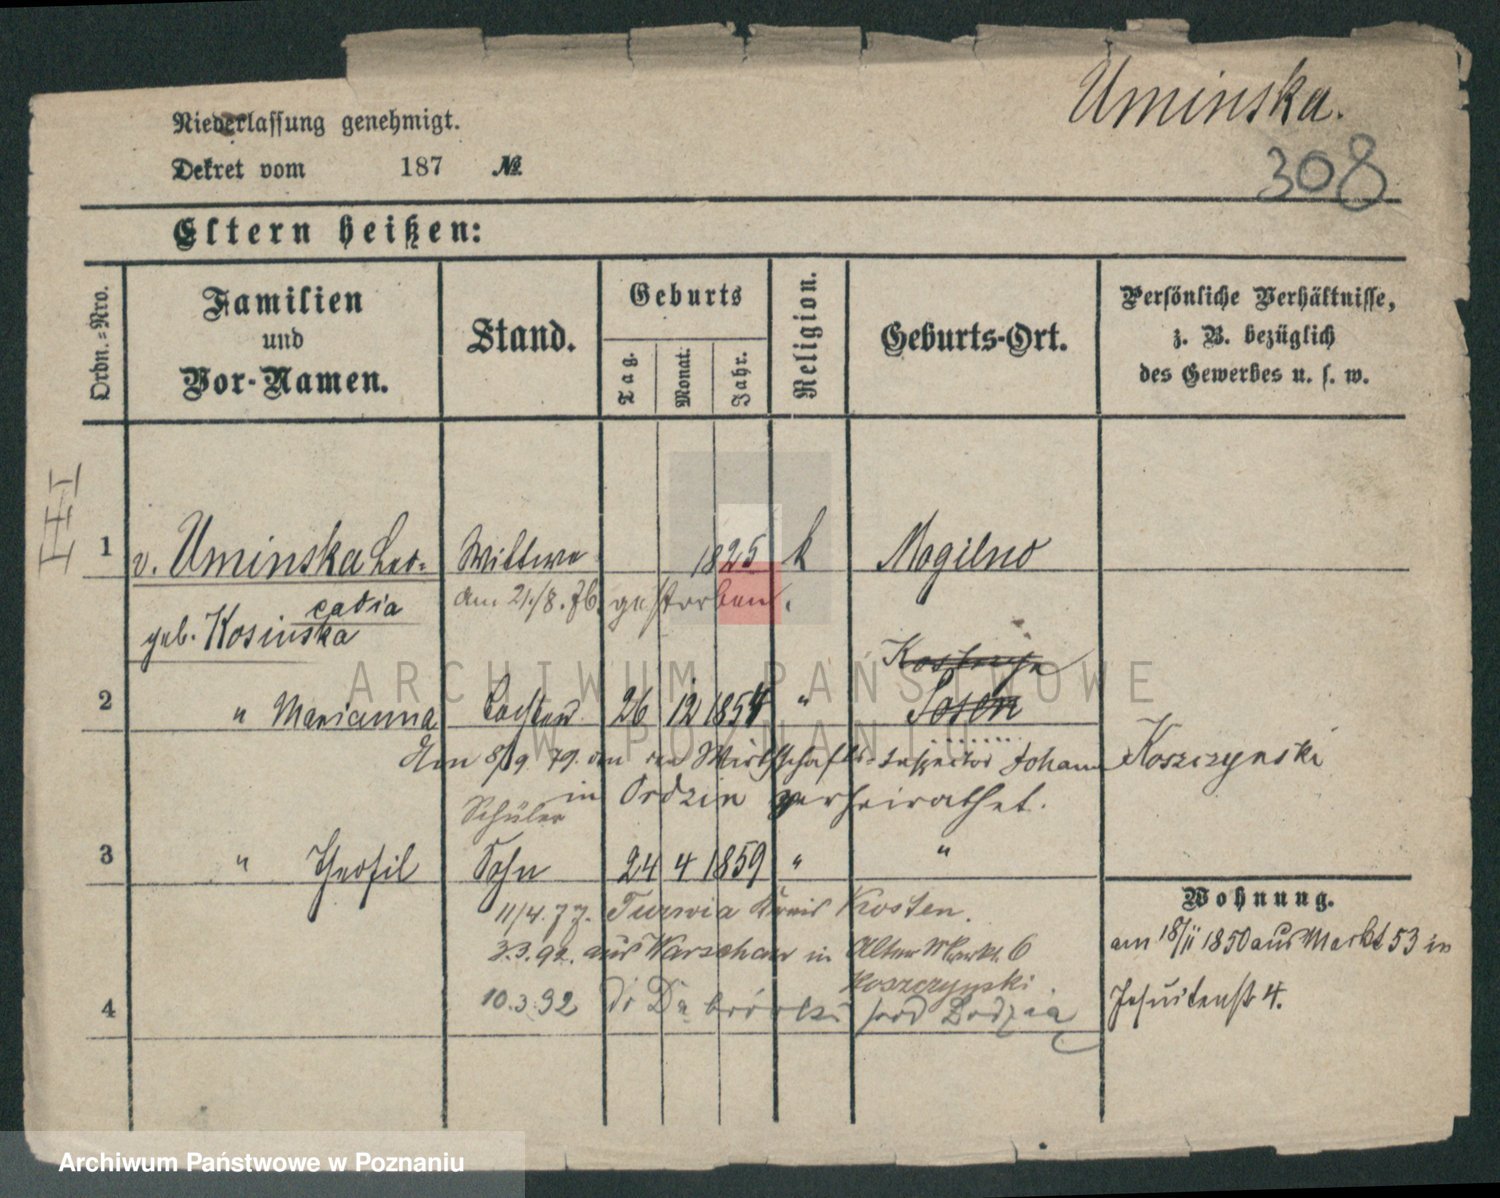 Uminska.
308
Niederlassung genehmigt.
Dekret vom 187 №
Eltern heißen:
Ordn.=Nro.
Familien
und
Vor-Namen.
Stand.
Geburts
Tag.
Monat.
Jahr.
Religion.
Geburts-Ort.
Persönliche Verhältnisse,
z. B. bezüglich
des Gewerbes u. s. w.
III
1 v. Uminska Leo= Wittwe 1825 k Mogilno
cadia am 21/8. 76. gestorben.
geb. Kosinska
Kostrzyn
2 " Marianna Tochter 26 12 1854 " Posen
Am 8/9. 79. an den Wirthschafts-Inspector Johann Koszczynski
in Ordzin verheirathet.
Schüler
3 " Theofil Sohn 24 4 1859 " "
11/4. 77. Turwia Kreis Kosten.
3.3.92. aus Warschau in Alter Markt 6
Koszczynski.
4 10.3.92
Wohnung.
am 18/11 1850 aus Markt 53 in
Jesuitenstr 4.
ARCHIWUM PAŃSTWOWE
W POZNANIU
Archiwum Państwowe w Poznaniu